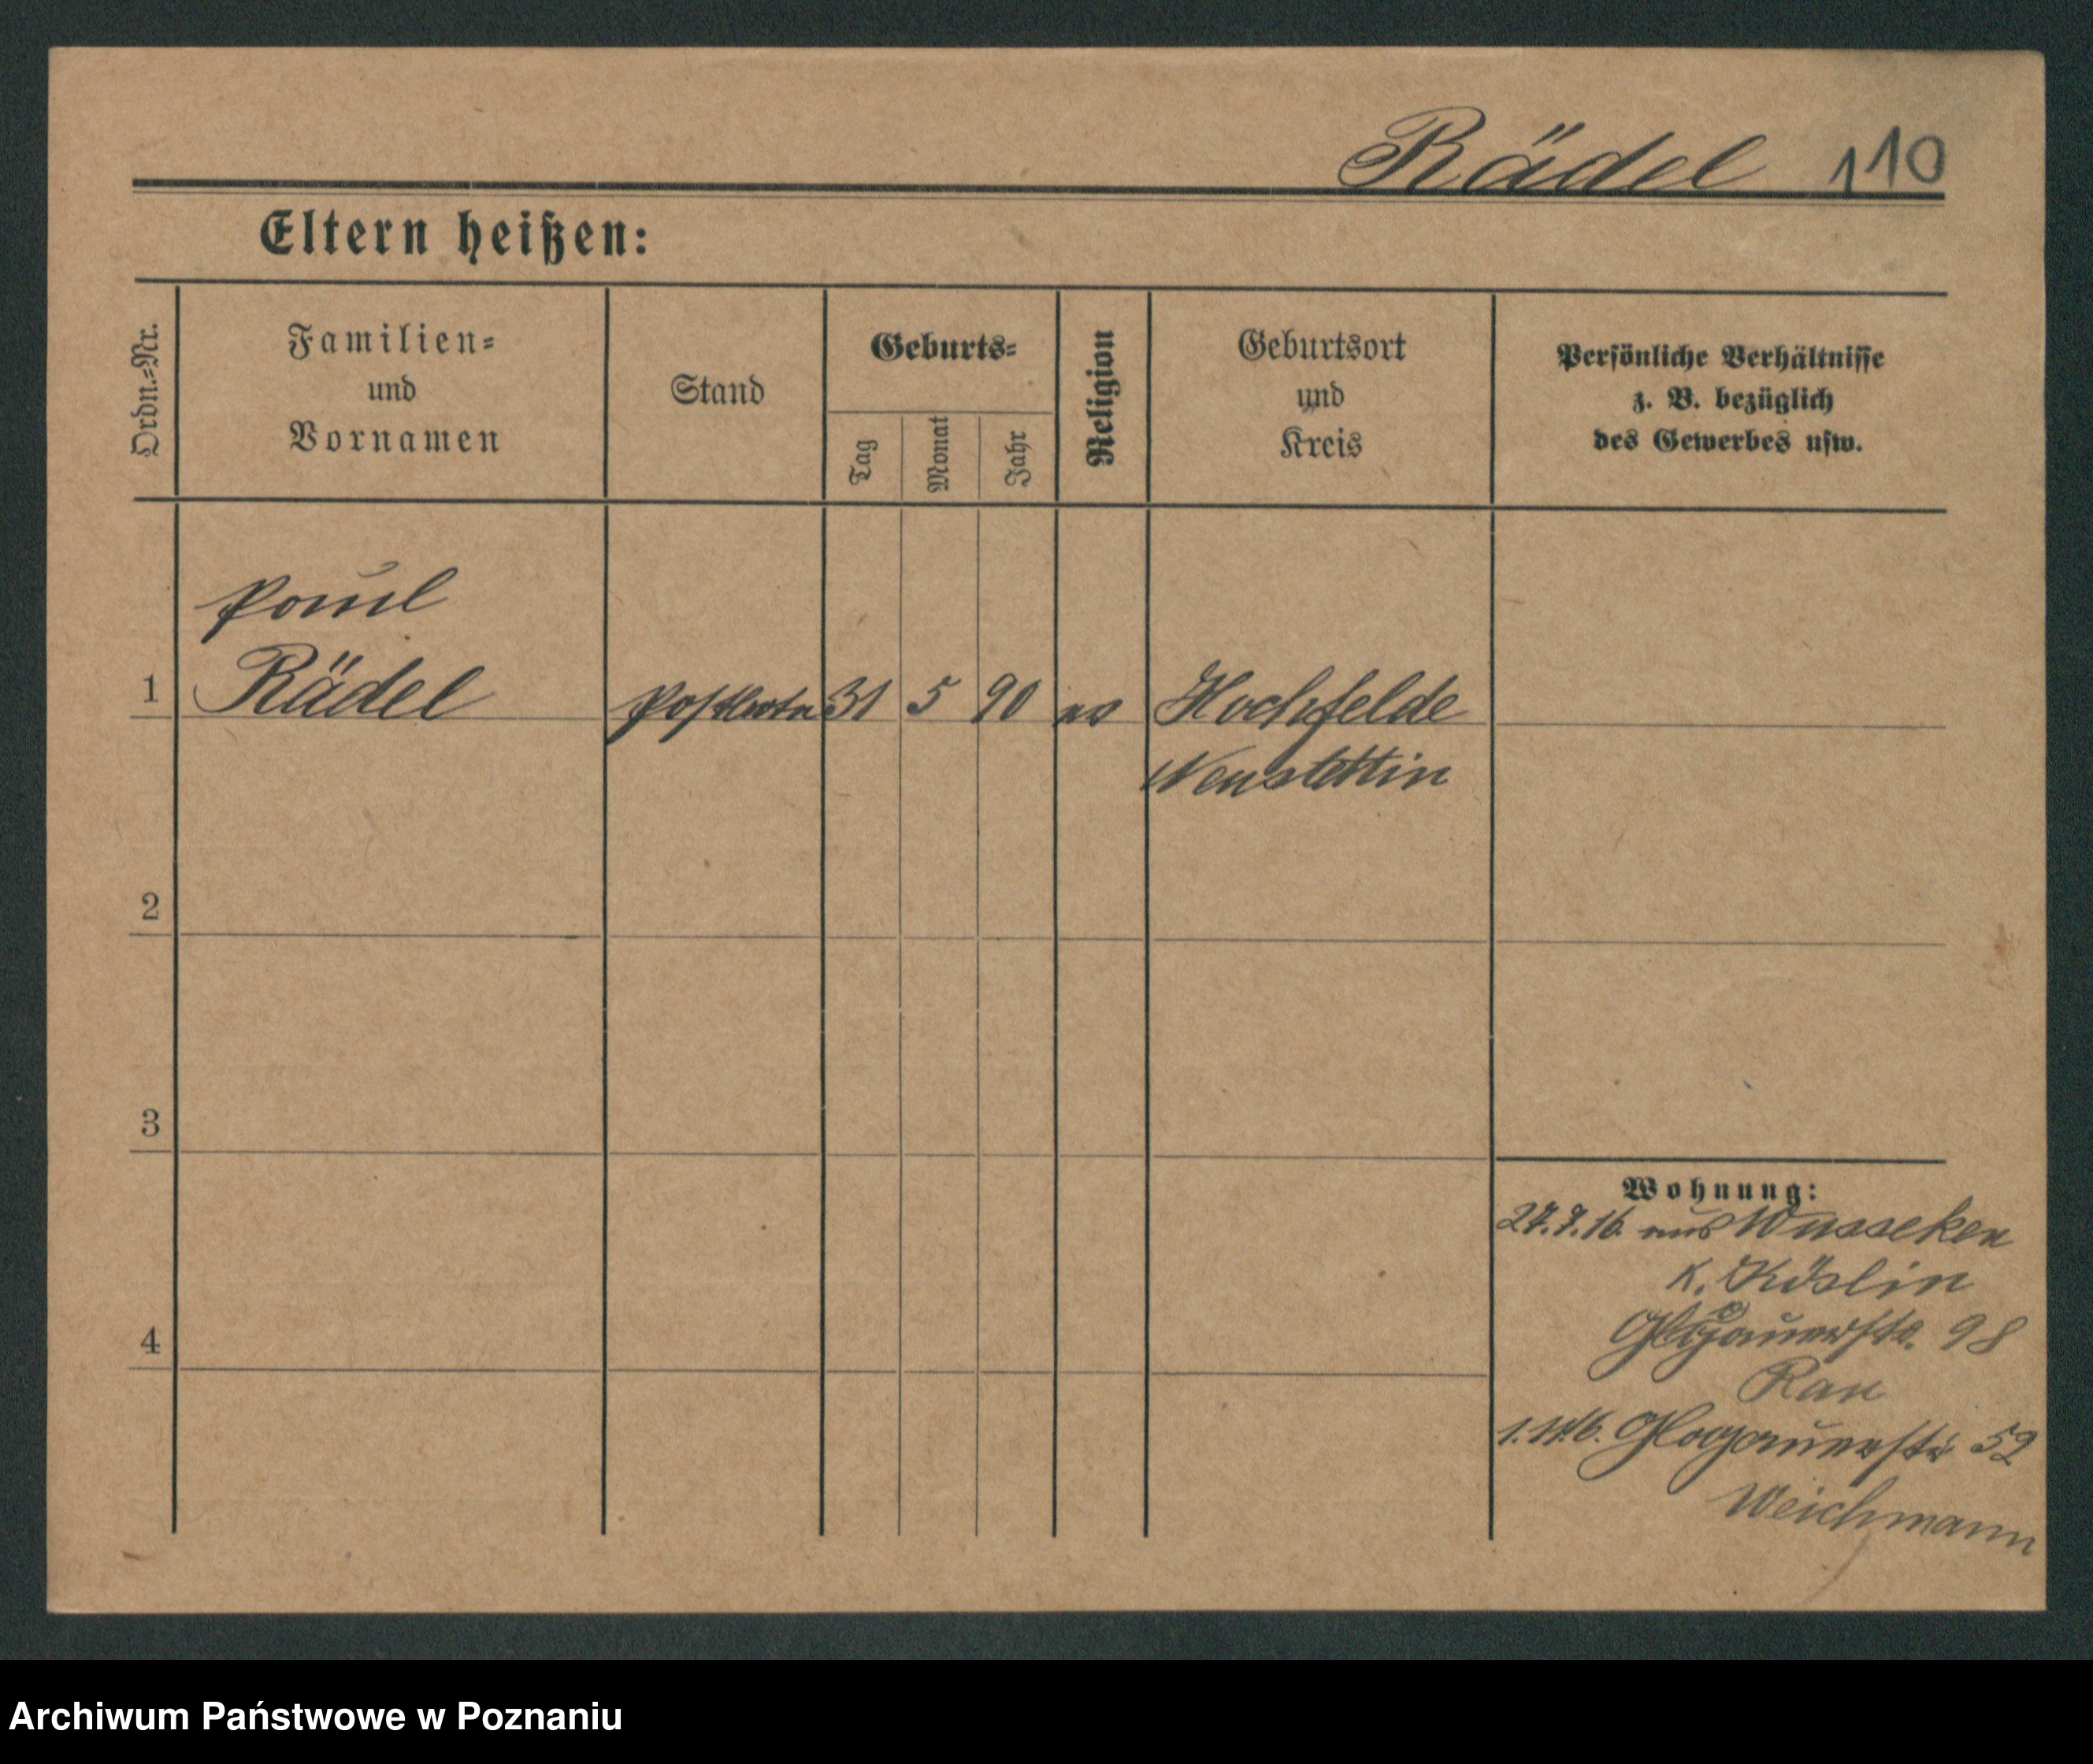 Rädel 110
Eltern heißen:
Ordn.=Nr.
Familien=
und
Vornamen
Stand
Geburts=
Tag
Monat
Jahr
Religion
Geburtsort
und
Kreis
Persönliche Verhältnisse
z. B. bezüglich
des Gewerbes usw.
Paul
1 Rädel Postbote 31 5 90 Hochfelde
Neustettin
2
3
4
Wohnung:
27.7.16 aus Wusseken
K. Köslin
Glogauerstr. 98
Rau
1.11.16. Glogauerstr 52
Weichmann
Archiwum Państwowe w Poznaniu